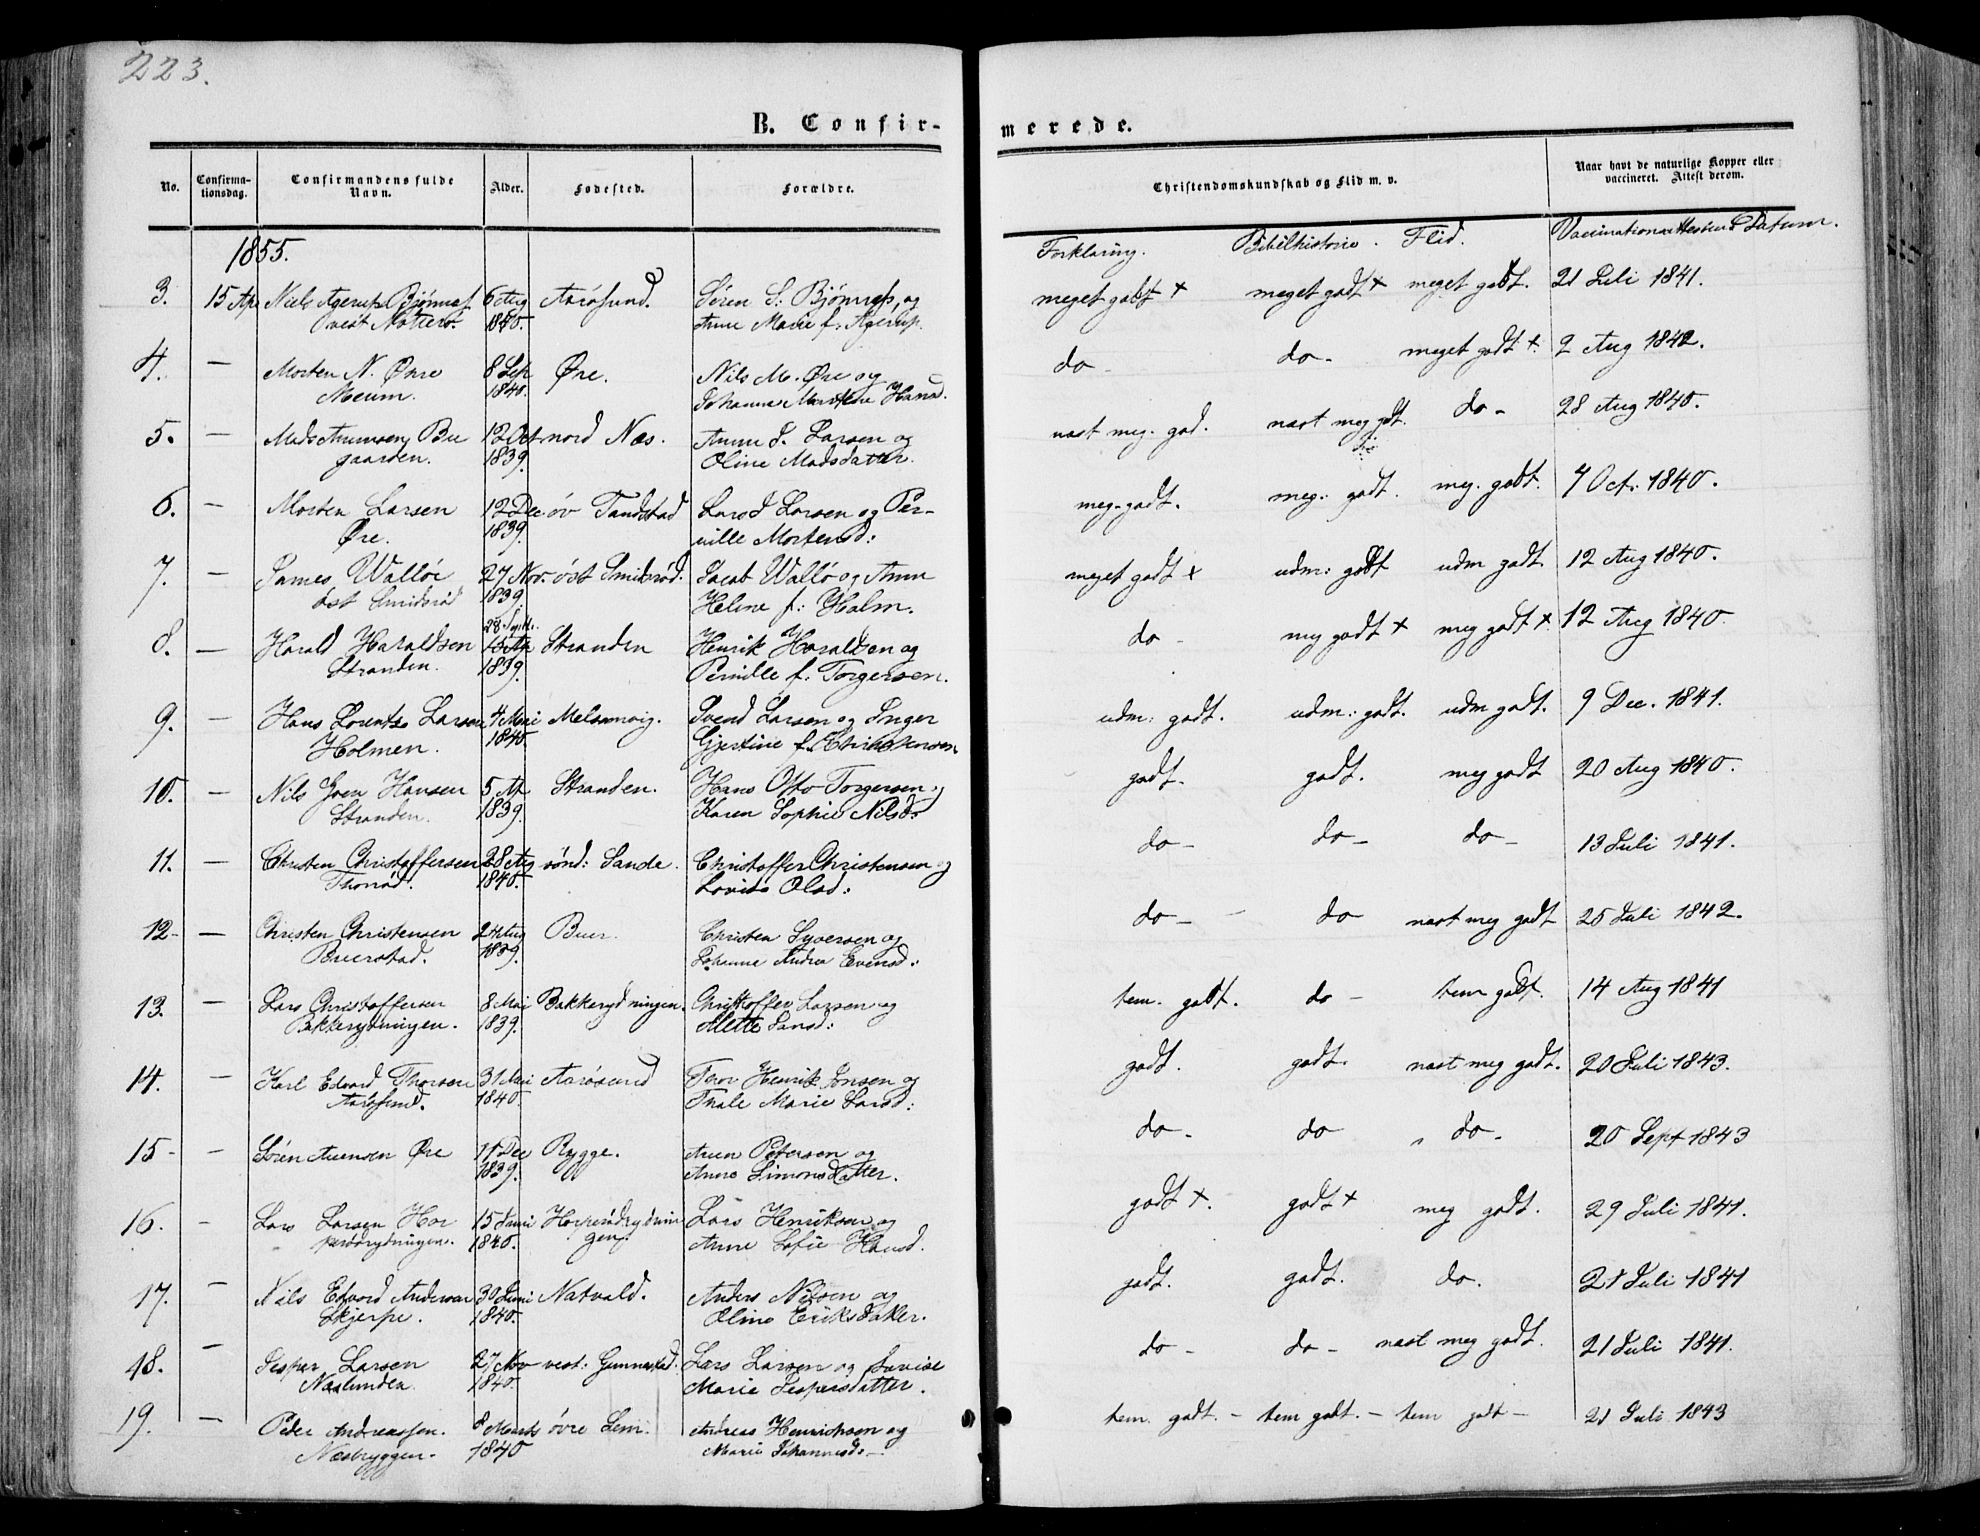 223.
B. Confir-
merede.
No.
Confirma-
tionsdag.
Confirmandens fulde
Navn.
Alder.
Fødested.
Forældre.
Christendomskundskab og Flid m. v.
Naar havt de naturlige Kopper eller
vaccineret. Attest derom.
1855.
Forklaring. Bibelhistorie. Flid. Datum.
3. 15 Apr Niels Agerup 6 Aug Aarøsund. Søren S. og meget godt + meget godt + meget godt. 21 Juli 1841.
vest 1840. Anne Marie f. Agerup.
4. — Morten N. Øre 8 Øre. Nils M. Øre og do - do - meget godt +. 2 Aug 1842.
1840. Johanne
5. — Mads 12 Oct nord Næs. S. Larsen og nast meg. god. nast meg gdt. do - 28 Aug 1840.
gaarden. 1839. Oline Madsdatter.
6. — Morten Larsen 12 Dec øv Tandstad Lars J Larsen og Per- meg. godt. meg. godt. meg. godt. 7 Oct. 1840.
Øre. 1839. nille Mortensd:
7. — James Walløe 27 Nov. øst Smidsrød. Jacob Wallø og Anne meget godt + udm: godt udm godt 12 Aug 1840.
øst Smidsrød 1839 Helene f: Holm.
28.
8. — Harald Haraldsen Stranden Henrik Haraldsen og do - meg godt + meg godt +. 12 Aug 1840.
Stranden. 1839. Pernille f. Torgersen.
9. — Hans Lorentz Larsen 4 Melsomvig. Svend Larsen og Inger udm: godt. udm: godt. udm godt. 9 Dec. 1841.
Holmen. 1840. Gjertine f.
10. — Nils Hansen 5 Ap Stranden. Hans Otto Torgersen og godt. godt. meg godt 20 Aug 1840.
Stranden. 1839. Karen Sophie Nilsd:
11. — Christen Christoffersen 28 Aug sønd: Sande. Christoffer Christensen og do - do - do - 13 Juli 1841.
Thorrød. 1840. Olsd:
12 - — Christen Christensen Aug Buer. Christen Syversen og do - do nast meg godt 25 Juli 1842.
Buerstad. 1839. Johanne Andrea Evensd:
13. — Lars Christoffersen 8 Mai Bakkerydningen. Christoffer Larsen og tem. godt. do - tem godt. 14 Aug 1841
Bakkerydningen. 1839. Larsd:
14. — Karl Edvard Thorsen 31 Aarøsund Thor Henrik Jonsen og godt. godt. nast meg godt. 20 Juli 1843.
Aarøsund. 1840. Thale Marie Larsd:
15 - — Søren Øre Dec Rygge. Petersen og do - do do. 20 Sept 1843
1839. Anne Simonsdatter.
16. - Lars Larsen Hor 15 Juni Lars Henriksen og godt +. godt + meg godt. 29 Juli 1841.
1840. gen. Anne Sofie Hansd.
17. — Nils Edvard Andersen 30 Juni Natvald. Anders Nilsen og godt. godt. do. 21 Juli 1841
Skjerpe. 1840. Oline Eriksdatter.
18. — Jesper Larsen 27 Nov vest: Gunnestad. Lars Larsen og Lovise do - do - nast meg godt. 21 Juli 1841.
Næslunden. 1840. Marie Jespersdatter.
19. — Peder Andreassen. 8 Marts øvre Lem. Andreas Henriksen og tem. godt. - tem godt. - tem godt - 21 Juli 1843
Næsbryggen. 1840 Marie Johannesd. -